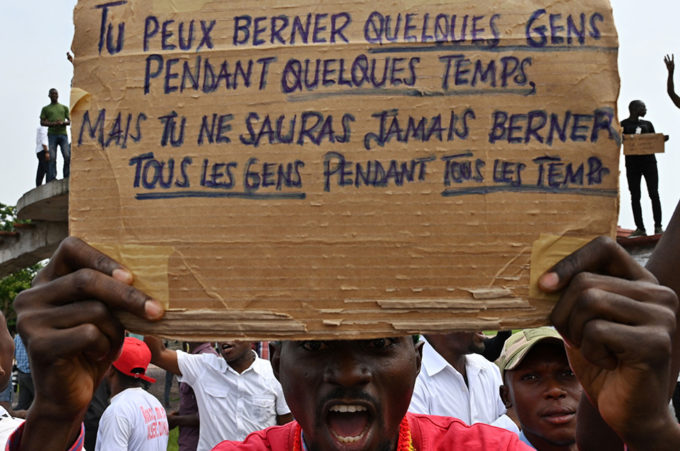 TU PEUX BERNER QUELQUES GENS
PENDANT QUELQUES TEMPS,
MAIS TU NE SAURAS JAMAIS BERNER
TOUS LES GENS PENDANT TOUS LES TEMPS